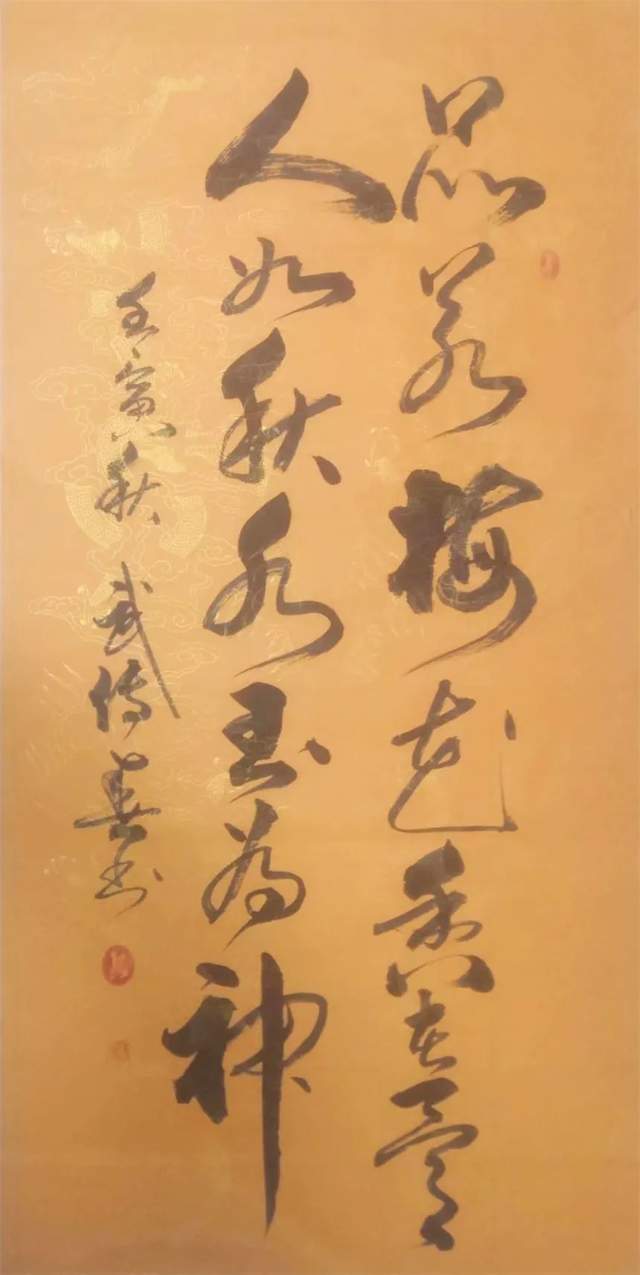 品若梅花香在骨
人如秋水玉为神
壬寅秋 武传善书